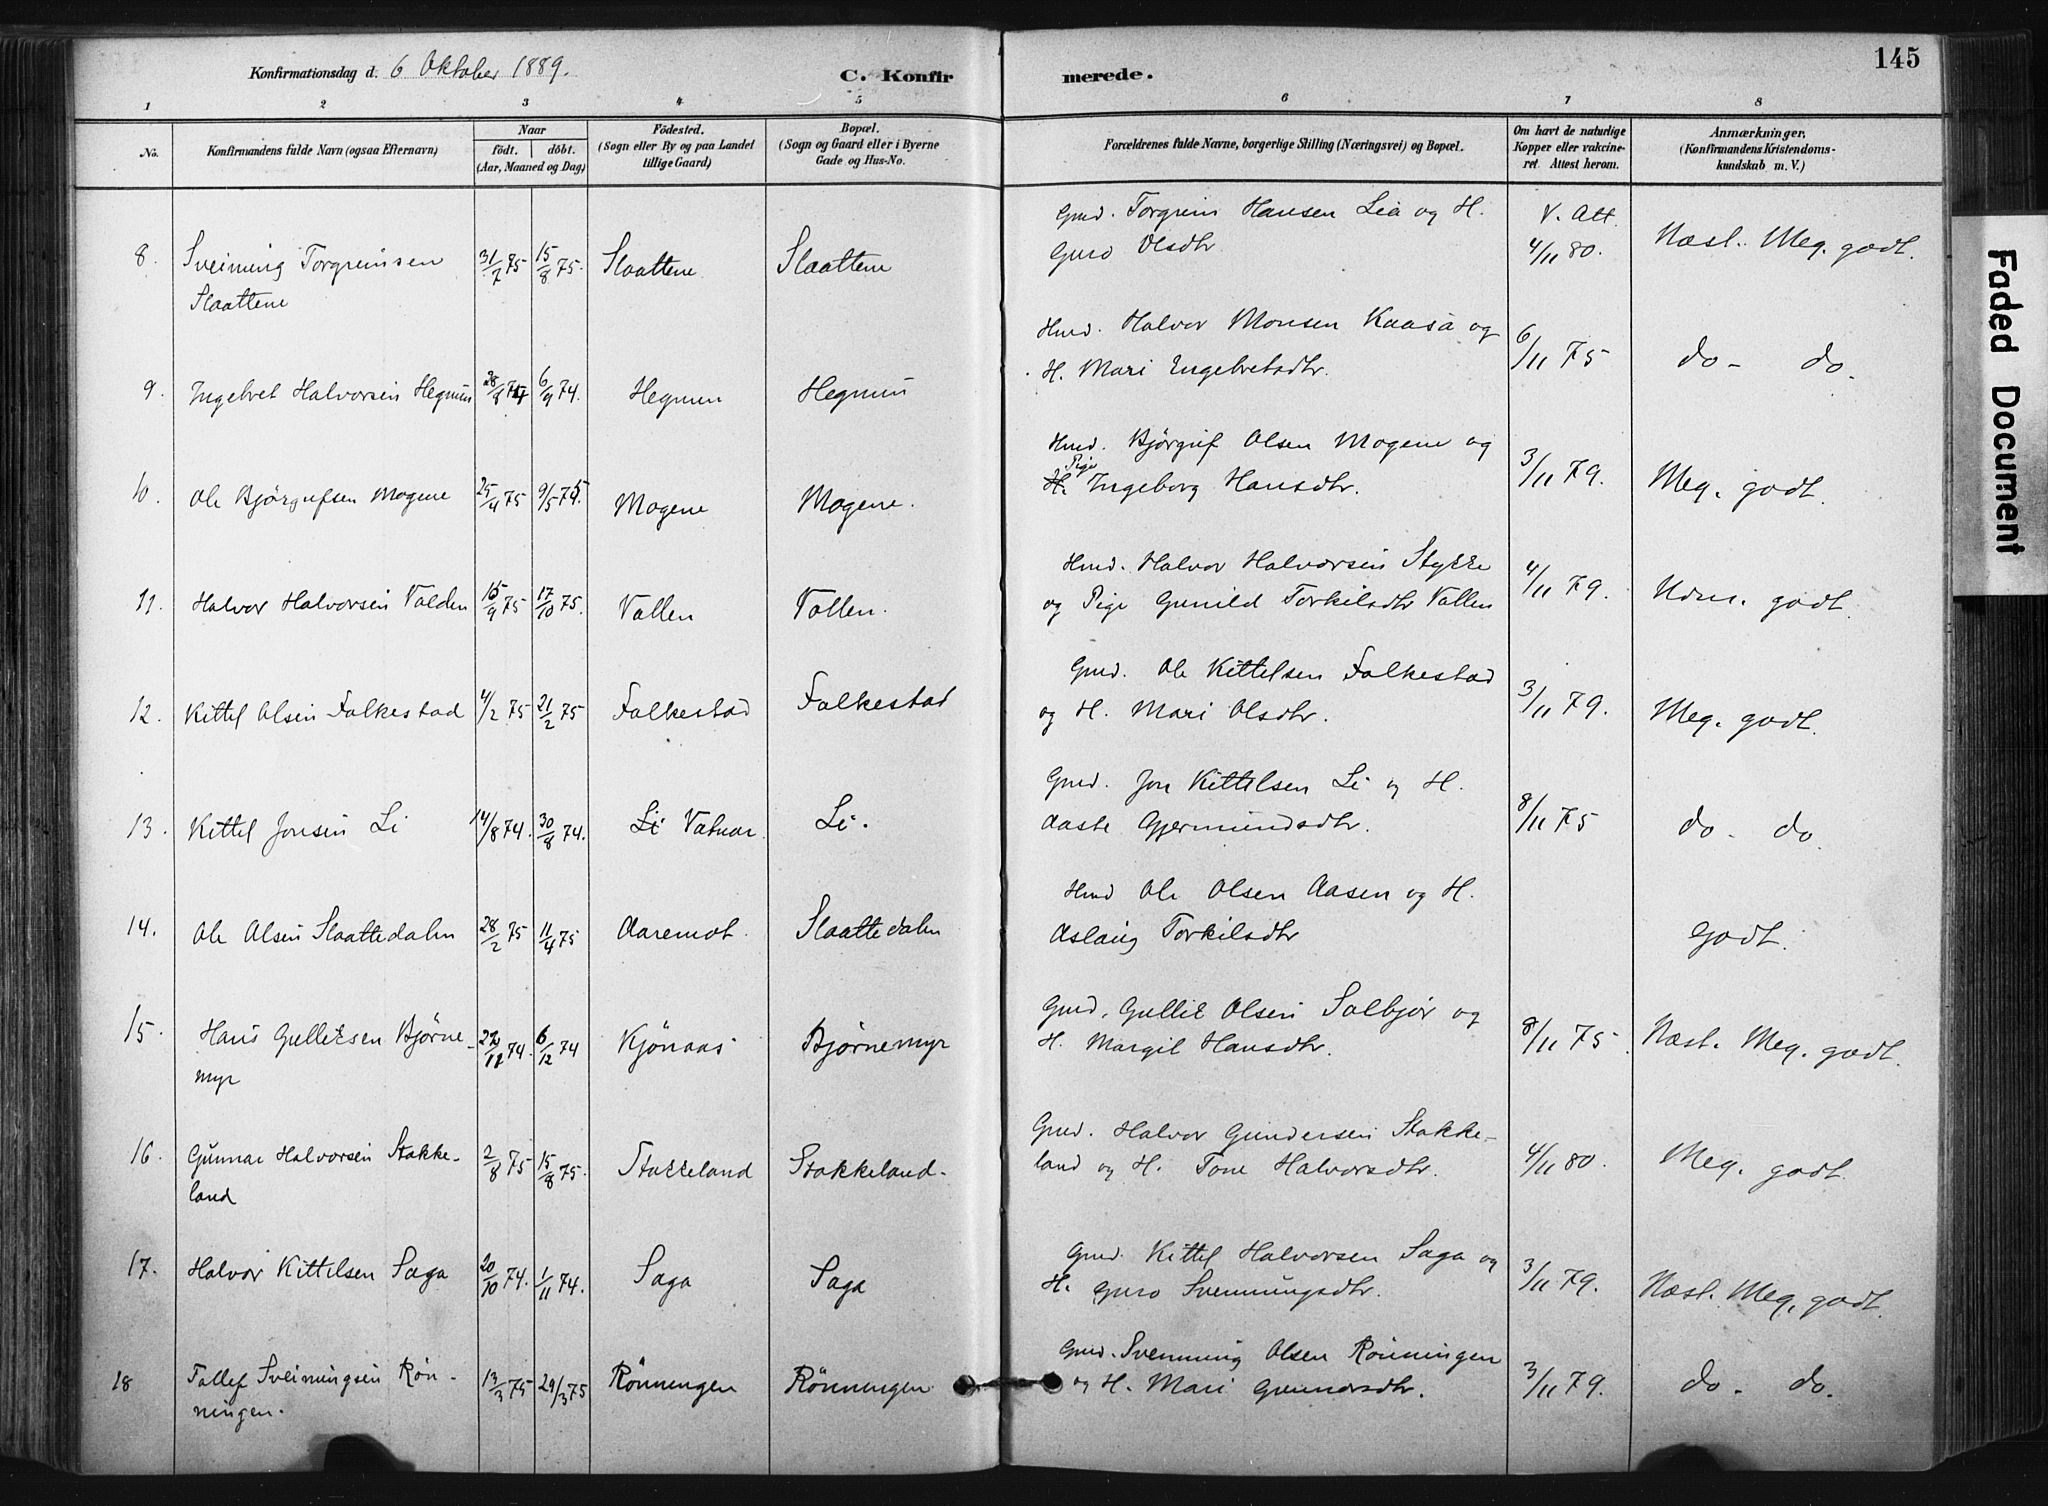 Konfirmationsdag d. 6 Oktober 1889.
C. Konfirmerede.
145
1 2 3 4 5 6 7 8
No.
Konfirmandens fulde Navn (ogsaa Efternavn)
Naar
födt. döbt.
(Aar, Maaned og Dag)
Födested.
(Sogn eller By og paa Landet
tillige Gaard)
Bopæl.
(Sogn og Gaard eller i Byerne
Gade og Hus-No.
Forældrenes fulde Navne, borgerlige Stilling (Næringsvei) og Bopæl.
Om havt de naturlige
Kopper eller vakcine-
ret. Attest herom.
Anmærkninger.
(Konfirmandens Kristendoms-
kundskab m. V.)
8. Sveinung Torgrimsen 31/7 75 15/8 75. Slaattene Slaattene
Slaattene
Gmd. Torgrim Hansen Lia og H.
Guro Olsdtr.
V. Att.
4/11 80.
Næst. Meg. godt.
9. Ingebret Halvorsen Hegnin 28/8 74 6/9 74. Hegnin Hegnin
Hmd. Halvor Monsen Kaasa og
H. Mari Engebretsdtr.
6/11 75
do - do.
10. Ole Bjørgufsen Mogene 25/4 75 9/5 75 Mogene Mogene.
Hmd. Bjørguf Olsen Mogene og
H. Pige Ingeborg Hansdtr.
3/11 79.
Meg. godt.
11. Halvor Halvorsen Valden 16/9 75 17/10 75. Vallen Vallen.
Hmd. Halvor Halvorsen Stykke
og Pige Gunild Torkilsdtr Vallen
4/11 79.
Udm. godt.
12. Kittel Olsen Falkestad 4/2 75 21/2 75 Falkestad Falkestad
Gmd. Ole Kittelsen Falkestad
og H. Mari Olsdtr.
3/11 79.
Meg. godt.
13. Kittel Jonsen Li 14/8 74. 30/8 74. Li Vatnar. Li.
Gmd. Jon Kittilsen Li og H.
Aaste Gjermundsdtr.
8/11 75
do - do.
14. Ole Olsen Slaattedalen 28/2 75 11/4 75 Aaremot. Slaattedalen
Hmd Ole Olsen Aasen og H.
Aslaug Torkilsdtr
Godt.
15. Hans Gulleksen Bjørne- 6/12 74 Kjønaas Bjørnemyr
myr
Gmd. Gullik Olsen Solbjør og
H. Margit Hansdtr.
8/11 75.
Næst. Meg. godt.
16. Gunnar Halvorsen Stokke- 2/8 75 15/8 75. Stokkeland Stokkeland.
land
Gmd. Halvor Gundersen Stokke-
land og H. Tone Halvorsdtr.
4/11 80.
Meg. godt.
17. Halvor Kittilsen Saga 20/10 74. 1/11 74. Saga Saga
Gmd. Kittel Halvorsen Saga og
H. Guro Svenningsdtr.
3/11 79.
Næst. Meg. godt.
18 Tallef Sveinungsen Røn- 13/3 75 29/3 75 Rønningen Rønningen.
ningen.
Gmd. Svenning Olsen Rønningen
og H. Mari Gunnarsdtr.
3/11 79.
do - do.
Faded Document